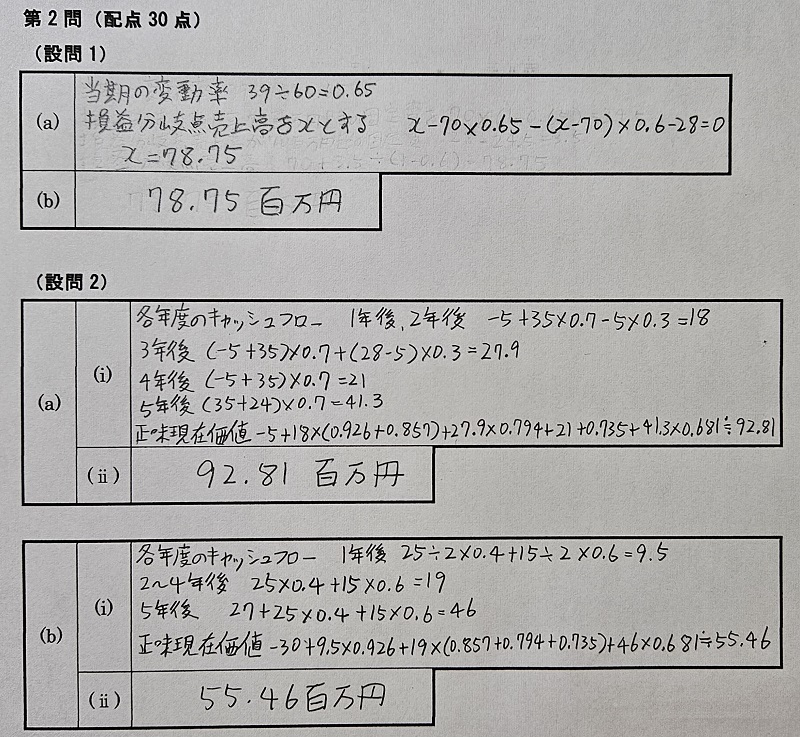 第2問(配点30点)
(設問1)
(a)
当期の変動率 39÷60=0.65
損益分岐点売上高をxとする x-70×0.65-(x-70)×0.6-28=0
x=78.75
(b)
78.75 百万円
(設問2)
(a)
(i)
各年度のキャッシュフロー 1年後、2年後 -5+35×0.7-5×0.3=18
3年後 (-5+35)×0.7+(28-5)×0.3=27.9
4年後 (-5+35)×0.7=21
5年後 (35+24)×0.7=41.3
正味現在価値 -5+18×(0.926+0.857)+27.9×0.794+21+0.735+41.3×0.681≒92.81
(ii)
92.81 百万円
(b)
(i)
各年度のキャッシュフロー 1年後 25÷2×0.4+15÷2×0.6=9.5
2~4年後 25×0.4+15×0.6=19
5年後 27+25×0.4+15×0.6=46
正味現在価値 -30+9.5×0.926+19×(0.857+0.794+0.735)+46×0.681≒55.46
(ii)
55.46百万円